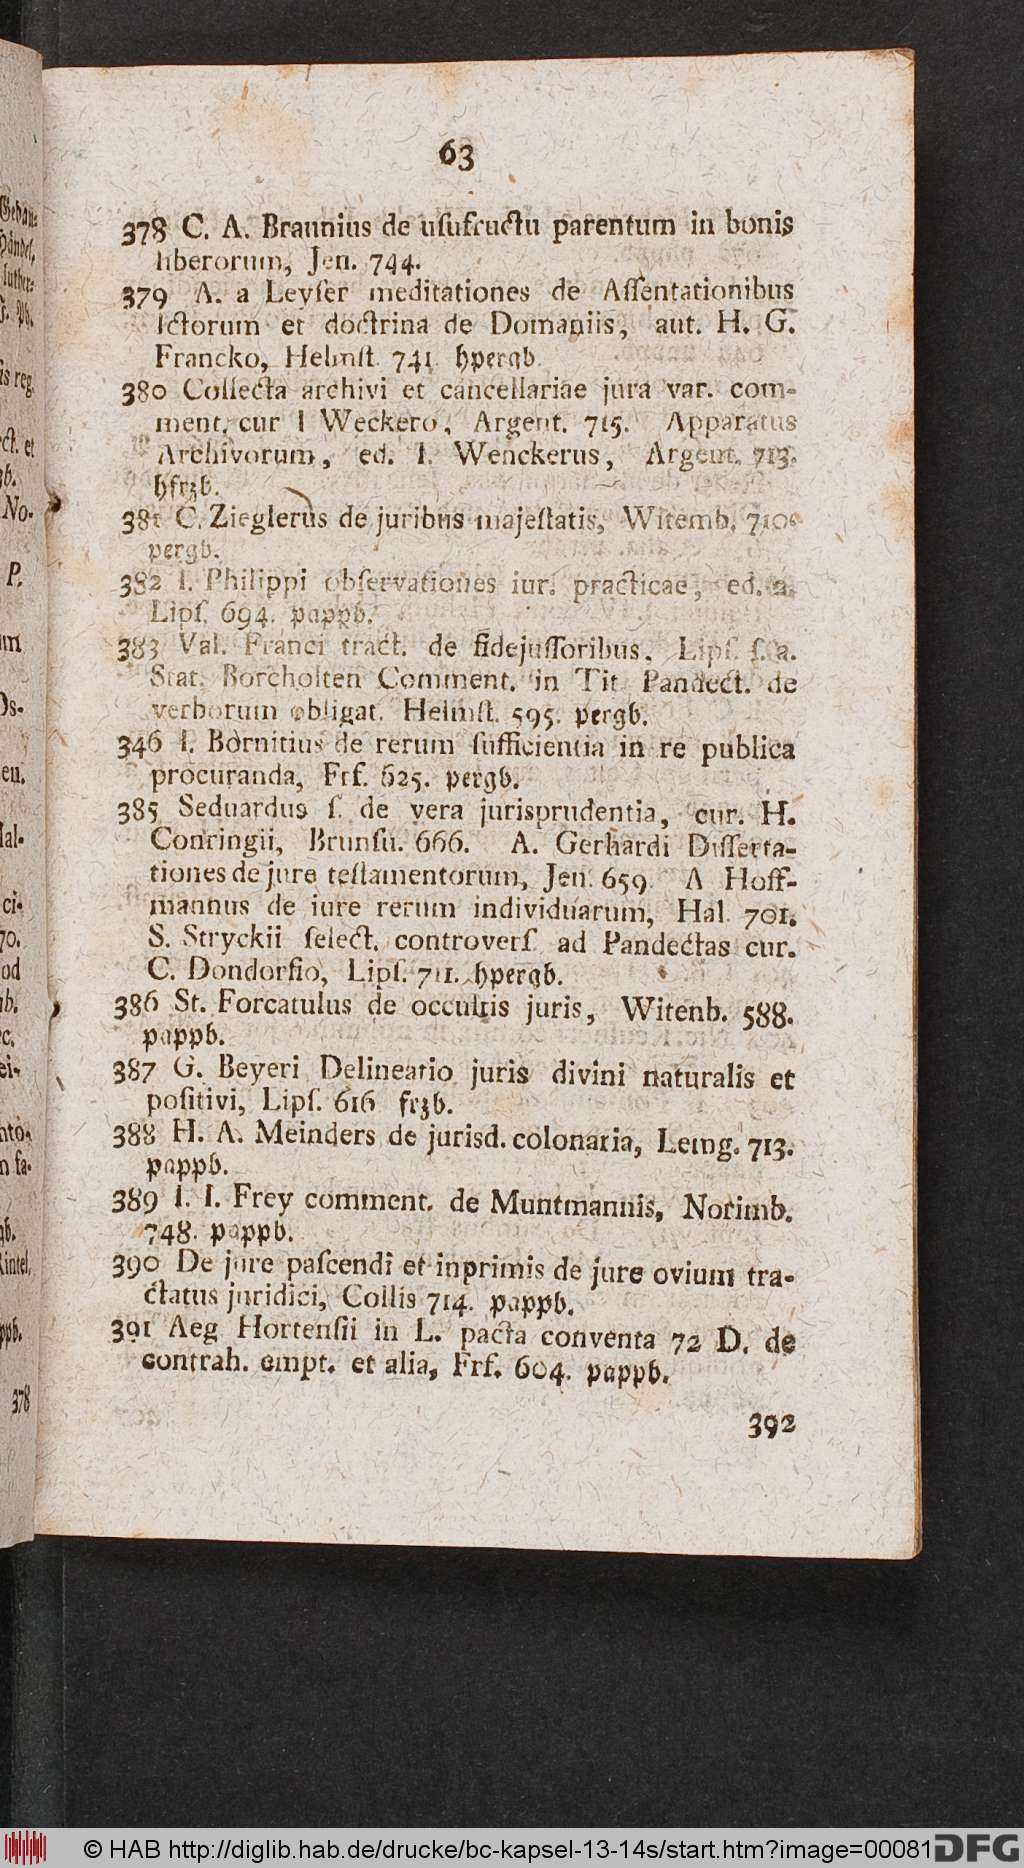 63
378 C. A. Braunius de uſufructu parentum in bonis
liberorum, Jen. 744.
379 A. a Leyſer meditationes de Aſſentationibus
Ictorum et doctrina de Domaniis, aut. H. G.
Francko, Helmſt. 741 hpergb
380 Collecta archivi et cancellariae jura var. com-
ment. cur I Weckero, Argent. 715. Apparatus
Archivorum, ed. I. Wenckerus, Argent. 713.
hfrzb.
381 C. Zieglerus de juribus majeſtatis, Witemb. 710.
pergb.
382 I. Philippi obſervationes iur. practicae, ed. 2.
Lipſ. 694. pappb.
383 Val. Franci tract. de fidejuſſoribus. Lipſ. ſ. a.
Stat. Borcholten Comment. in Tit Pandect. de
verborum obligat. Helmſt. 595. pergb.
346 I. Bornitius de rerum ſufficientia in re publica
procuranda, Frf. 625. pergb.
385 Seduardus ſ. de vera jurisprudentia, cur. H.
Conringii, Brunſu. 666. A. Gerhardi Diſſerta-
tiones de jure teſtamentorum, Jen. 659 A Hoff-
mannus de iure rerum individuarum, Hal 701.
S. Stryckii ſelect. controverſ ad Pandectas cur.
C. Dondorfio, Lipſ. 711. hpergb.
386 St. Forcatulus de occultis juris, Witenb. 588.
pappb.
387 G. Beyeri Delineatio juris divini naturalis et
poſitivi, Lipſ. 616 frzb.
388 H. A. Meinders de jurisd. colonaria, Lemg. 713.
pappb.
389 I. I. Frey comment. de Muntmannis, Norimb.
748. pappb.
390 De jure paſcendi et inprimis de jure ovium tra-
ctatus juridici, Collis 714. pappb.
391 Aeg Hortenſii in L. pacta conventa 72 D. de
contrah. empt. et alia, Frf. 604. pappb.
392
378
© HAB http://diglib.hab.de/drucke/bc-kapsel-13-14s/start.htm?image=00081
DFG